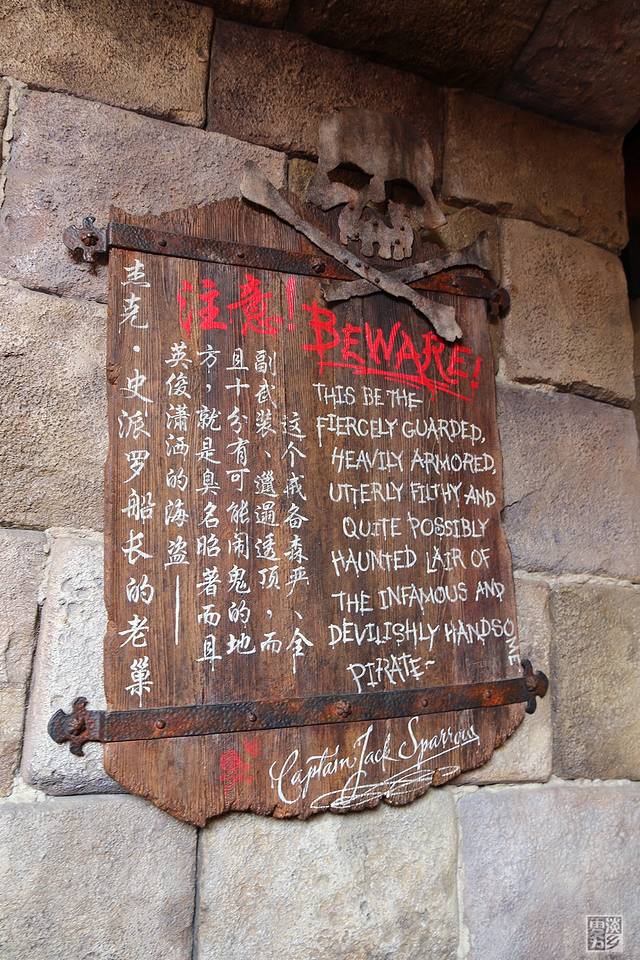 注意！
这个戒备森严、全
副武装、邋遢透顶，而
且十分有可能闹鬼的地
方，就是臭名昭著而且
英俊潇洒的海盗——
杰克·史派罗船长的老巢
BEWARE!
THIS BE THE
FIERCELY GUARDED,
HEAVILY ARMORED,
UTTERLY FILTHY AND
QUITE POSSIBLY
HAUNTED LAIR OF
THE INFAMOUS AND
DEVILISHLY HANDSOME
PIRATE~
Captain Jack Sparrow